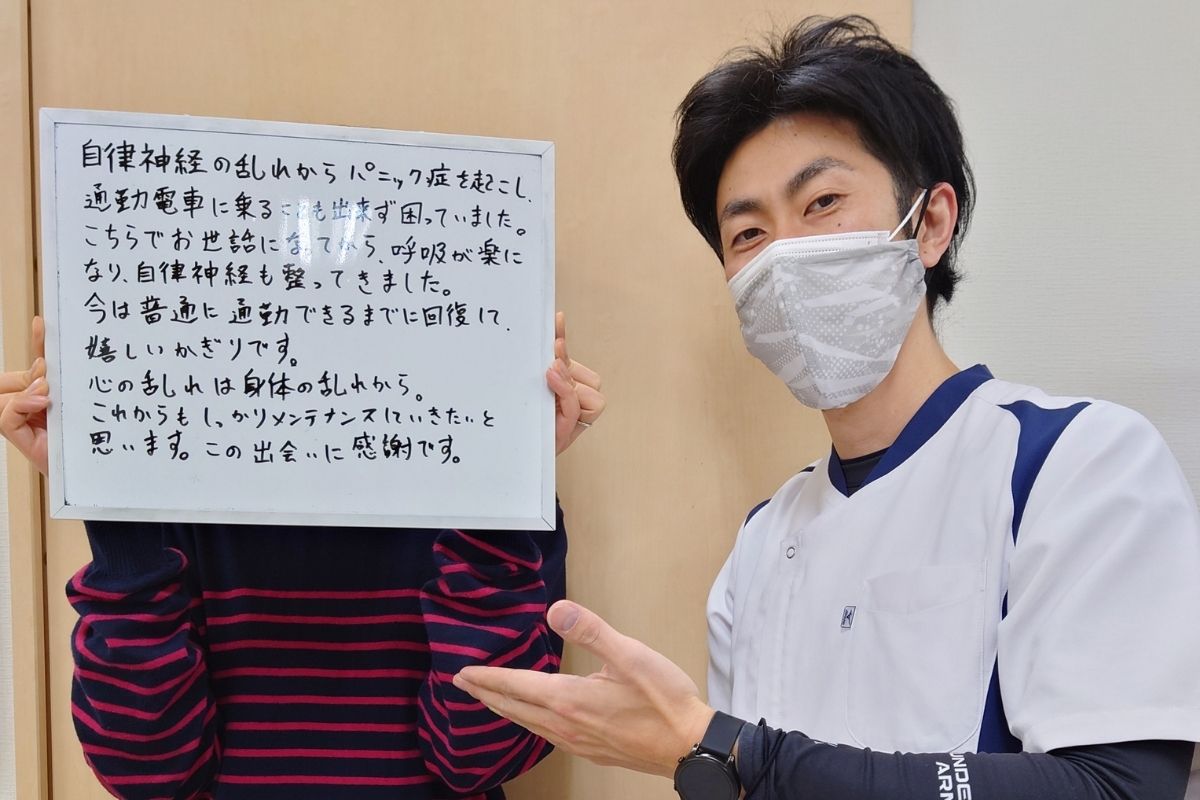 自律神経の乱れからパニック症を起こし、
通勤電車に乗ることも出来ず困っていました。
こちらでお世話になってから、呼吸が楽に
なり、自律神経も整ってきました。
今は普通に通勤できるまでに回復して、
嬉しいかぎりです。
心の乱れは身体の乱れから。
これからもしっかりメンテナンスしていきたいと
思います。この出会いに感謝です。
K
UNDE
ARM